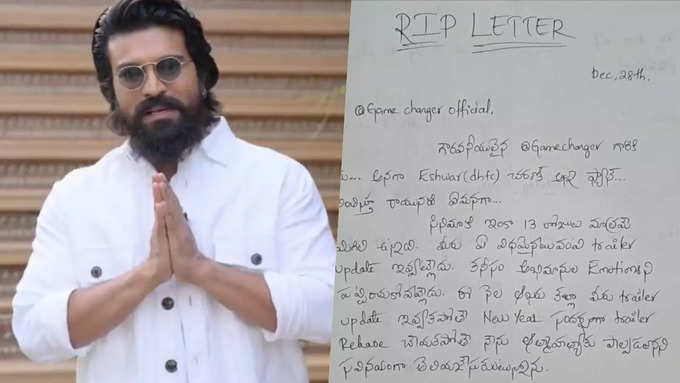 RIP LETTER
Dec, 28th.
@Game changer official,
గౌరవనీయులైన @Gamechanger గారికి
... అనగా Eshwar(dhfc) చరణ్ అన్న ఫ్యాన్...
రాయునది ఏమనగా...
సినిమాకి ఇంకా 13 రోజులు మాత్రమే
ఉన్నది. మీరు ఏ విధమైనటువంటి trailer
update ఇవ్వట్లేదు. కనీసం అభిమానుల Emotionsని
పట్టించుకోవట్లేదు. ఈ నెల ఆఖరు కల్లా మీరు trailer
update ఇవ్వకపోతే New Year సందర్భంగా trailer
Release చేయకపోతే నేను ఆత్మహత్యకు పాల్పడతానని
సవినయంగా తెలియజేసుకుంటున్నాను.